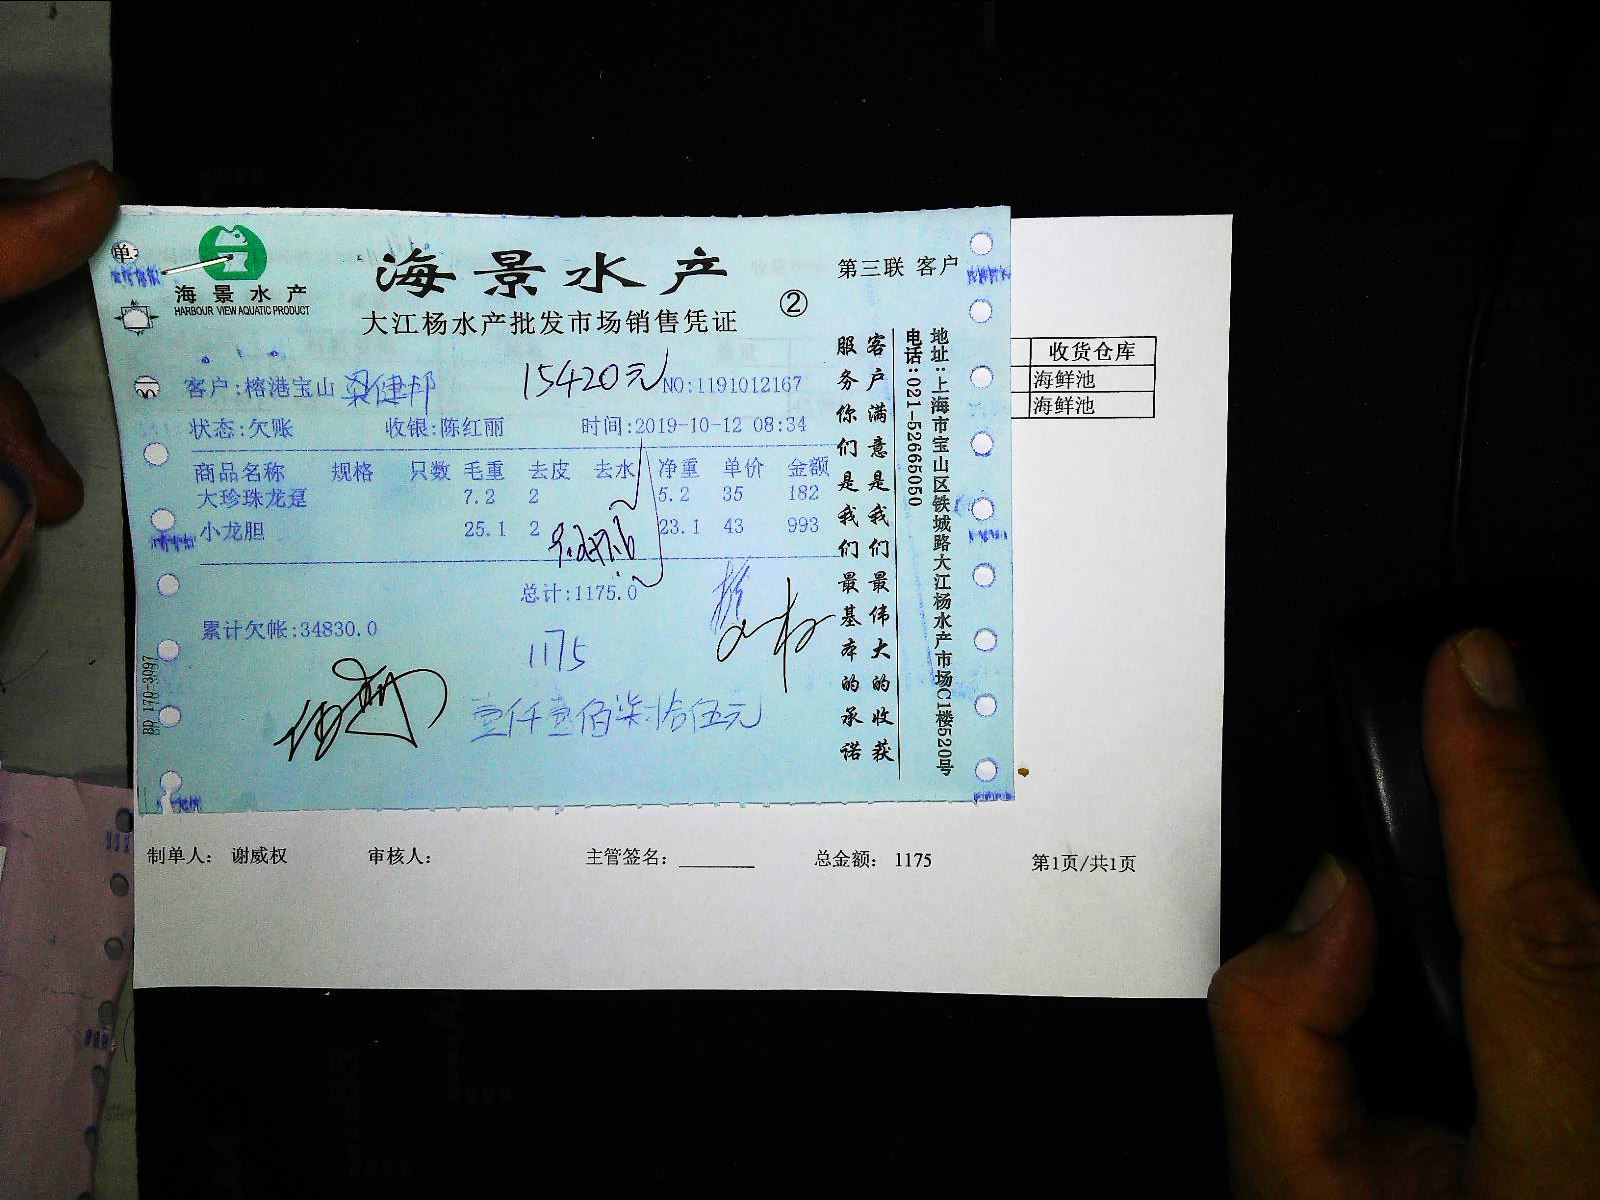 海景水产
HARBOUR VIEW AQUATIC PRODUCT
海景水产
第三联 客户
大江杨水产批发市场销售凭证
②
客户:榕港宝山 梁健邦
15420元
NO:1191012167
状态:欠账 收银:陈红丽 时间:2019-10-12 08:34
商品名称 规格 只数 毛重 去皮 去水 净重 单价 金额
大珍珠龙趸 7.2 2 5.2 35 182
小龙胆 25.1 2 23.1 43 993
总计:1175.0
累计欠帐:34830.0
1175
壹仟壹佰柒拾伍元
客户满意是我们最伟大的收获
服务你们是我们最基本的承诺
地址:上海市宝山区铁城路大江杨水产市场C1楼520号
电话:021-52665050
BD 170-3997
单
收货仓库
海鲜池
海鲜池
制单人: 谢威权 审核人: 主管签名: 总金额: 1175 第1页/共1页